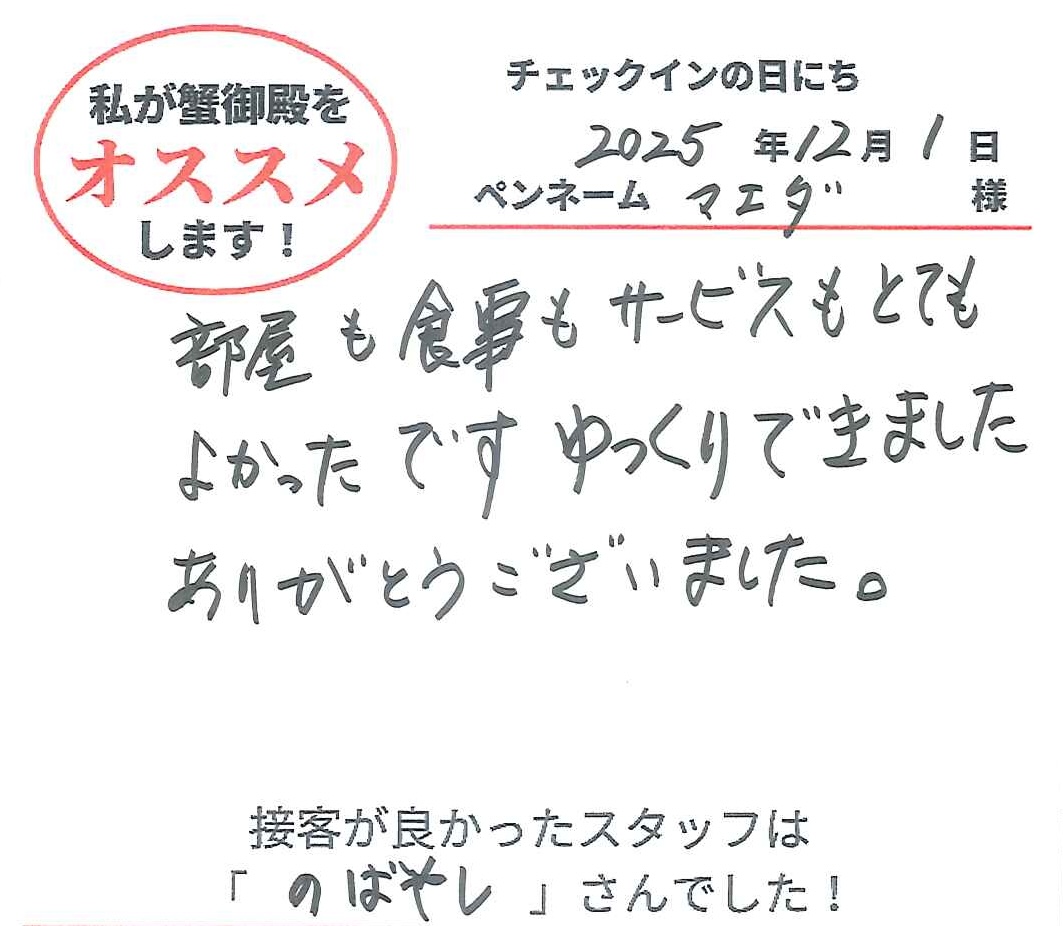 私が蟹御殿を
オススメ
します！
チェックインの日にち
2025年12月1日
ペンネーム マエダ 様
部屋も食事もサービスもとても
よかったです ゆっくりできました
ありがとうございました。
接客が良かったスタッフは
「のばやし」さんでした！